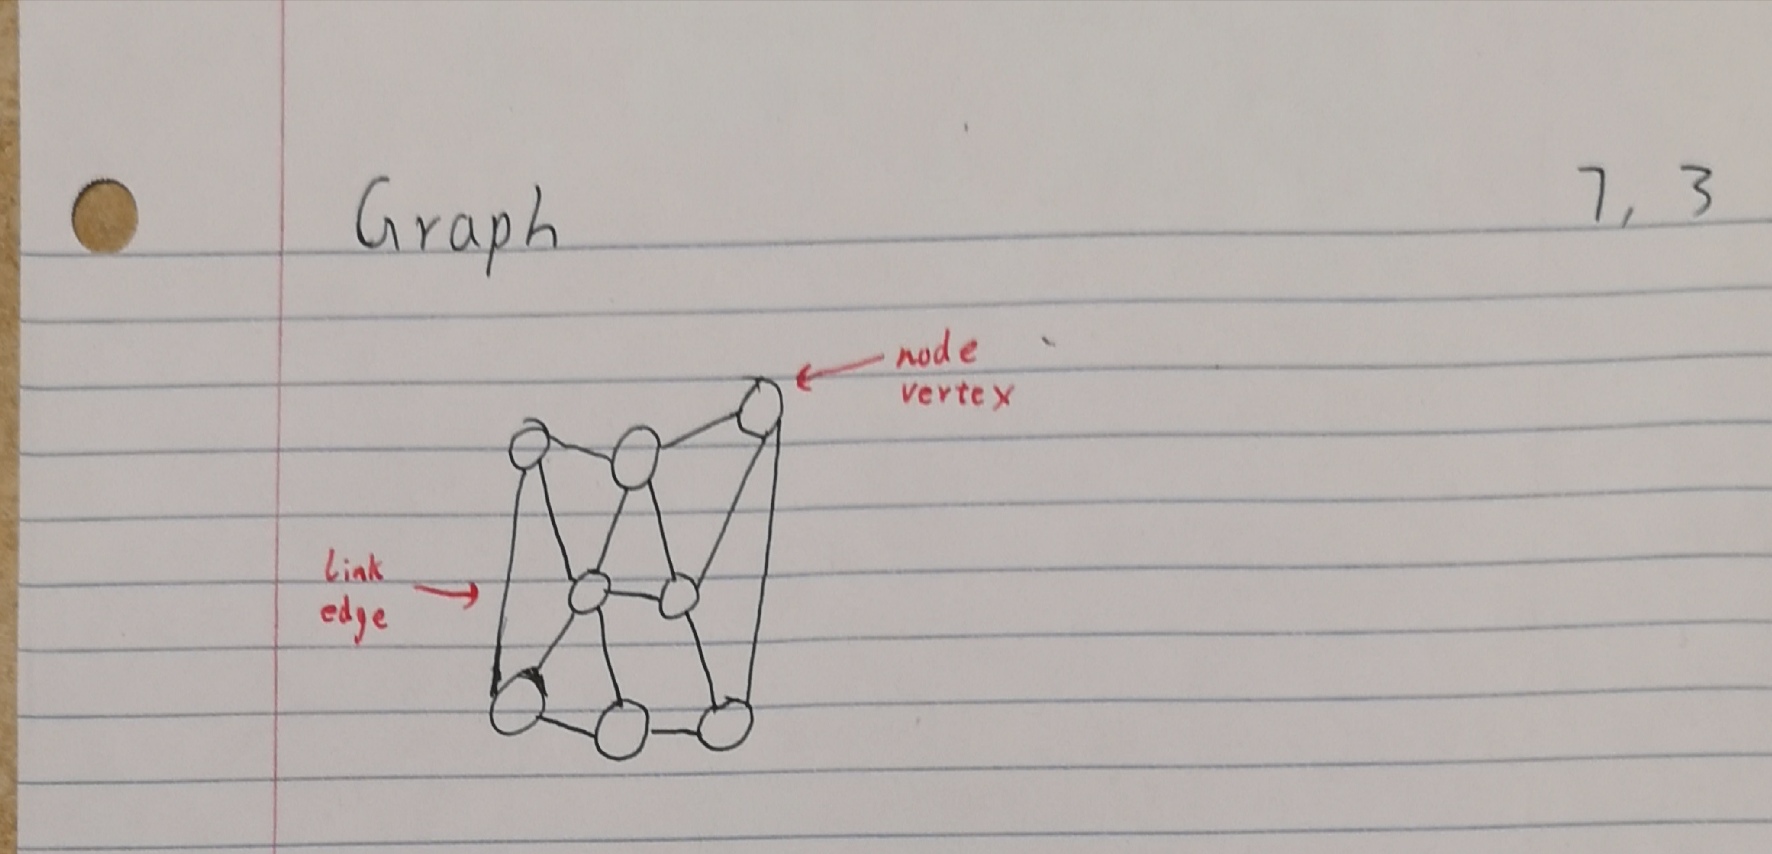 Graph 7, 3
node
vertex
link
edge